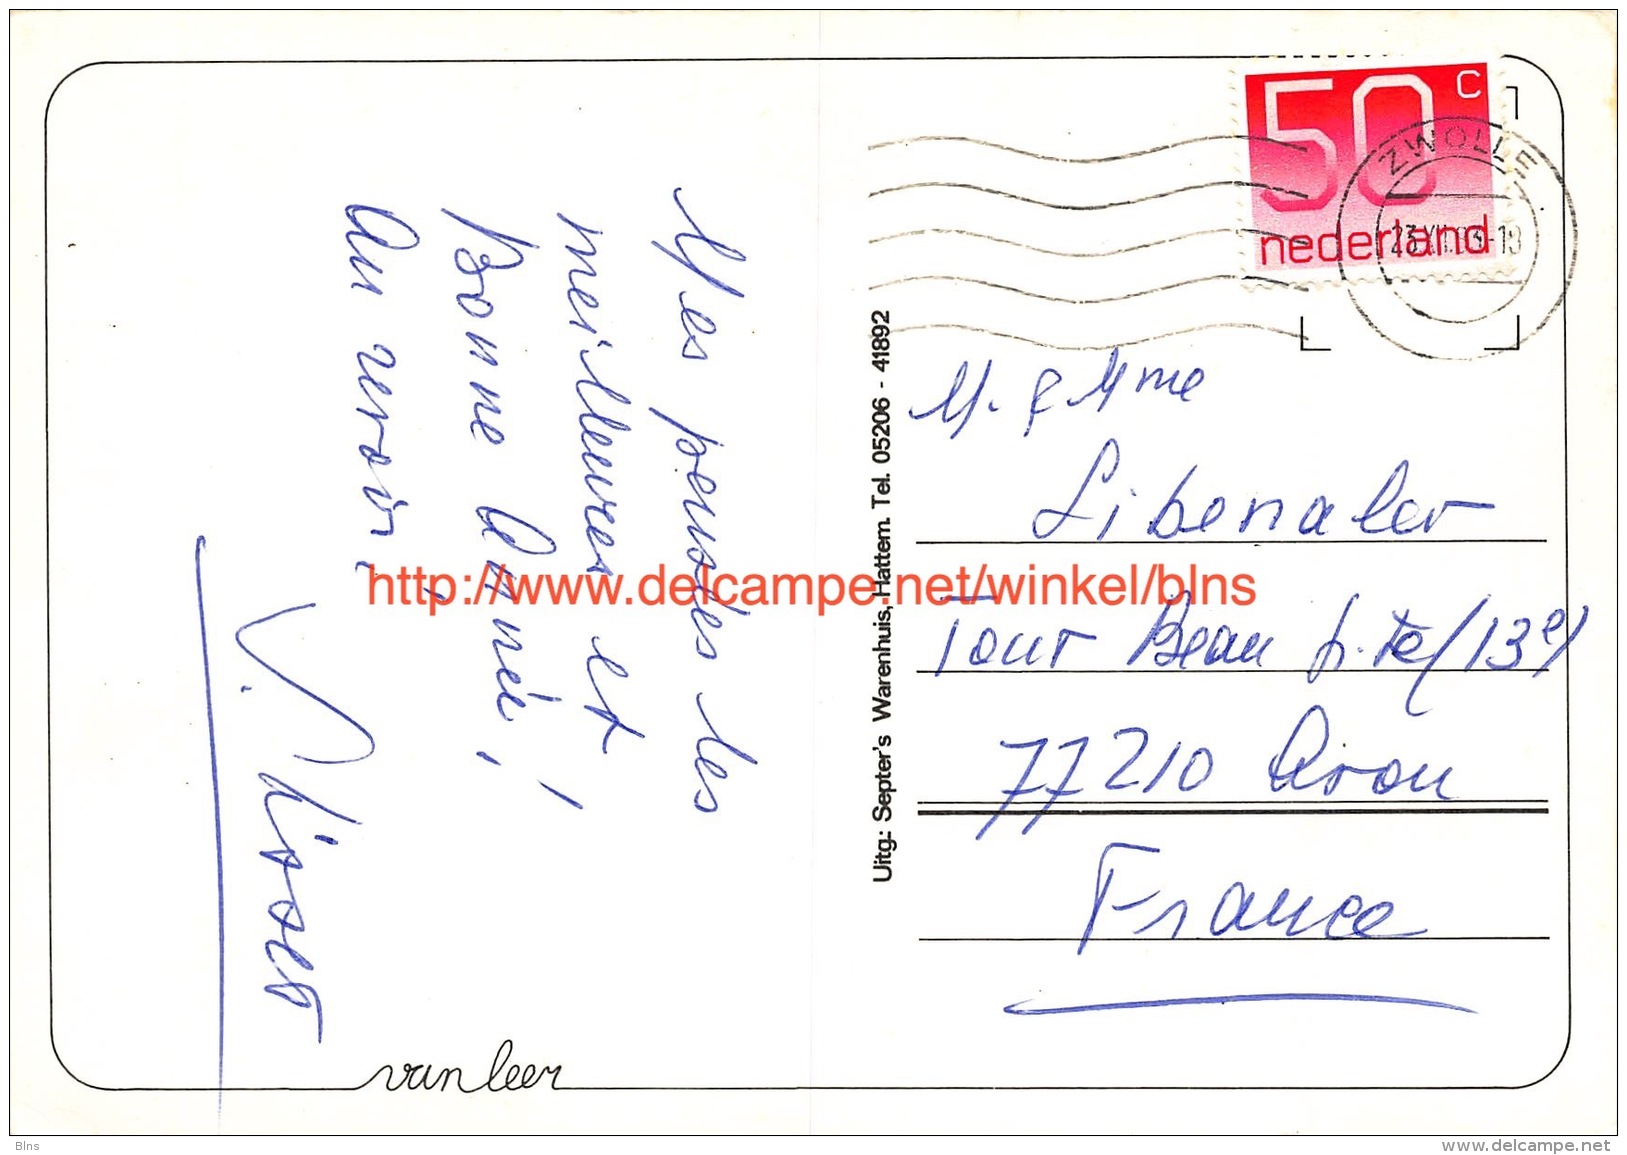 Mes pensées les
meilleures et
Bonne Année,!
Au revoir,
V.
van leer
Uitg.: Septer's Warenhuis, Hattem. Tel. 05206 - 41892
50 c
nederland
ZWOLLE
M. & Mme
Libenaler
Tour Beau Site (13e)
77210 Avon
France
http://www.delcampe.net/winkel/blns
Blns
www.delcampe.net